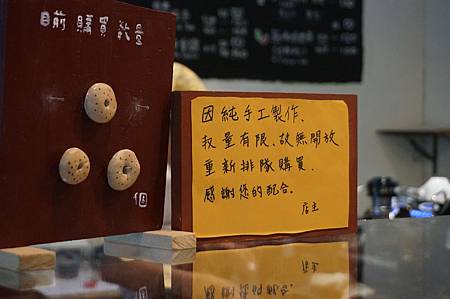 目前購買數量
個
因純手工製作、
數量有限、故無開放
重新排隊購買、
感謝您的配合。
店主